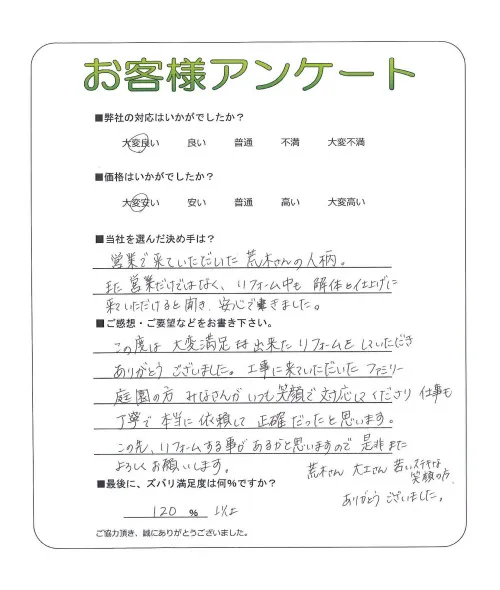 お客様アンケート
■弊社の対応はいかがでしたか?
大変良い 良い 普通 不満 大変不満
■価格はいかがでしたか?
大変安い 安い 普通 高い 大変高い
■当社を選んだ決め手は?
営業で来ていただいた 荒木さんの人柄。
また 営業だけではなく、リフォーム中も 解体と仕上げに
来ていただけると聞き、安心で きました。
■ご感想・ご要望などをお書き下さい。
この度は 大変満足 出来た リフォームをしていただき
ありがとうございました。工事に来ていただいた ファミリー
庭園の方 みなさんが いつも笑顔で対応してくださり 仕事も
丁寧で 本当に 依頼して 正確だったと思います。
この先、リフォームする事があるかと思いますので 是非また
よろしくお願いします。
荒木さん 大工さん 若いステキな
笑顔の方
ありがとうございました。
■最後に、ズバリ満足度は何%ですか?
120 % 以上
ご協力頂き、誠にありがとうございました。